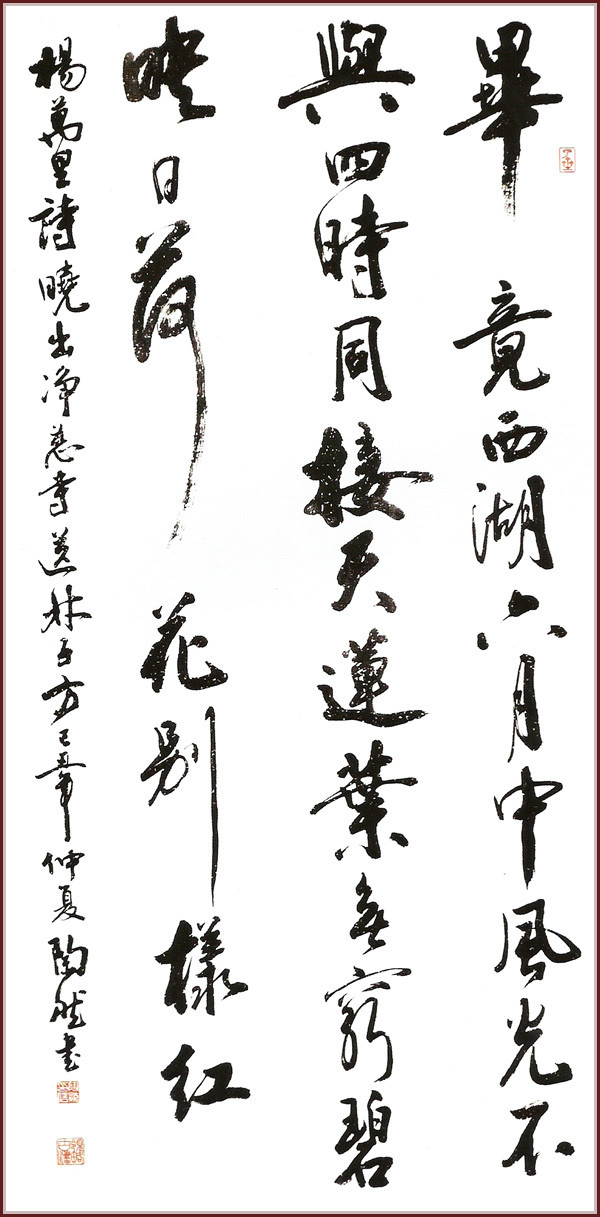 畢竟西湖六月中風光不
與四時同接天蓮葉無窮碧
映日荷花別樣紅
楊萬里詩曉出净慈寺送林子方己丑年仲夏陶然書